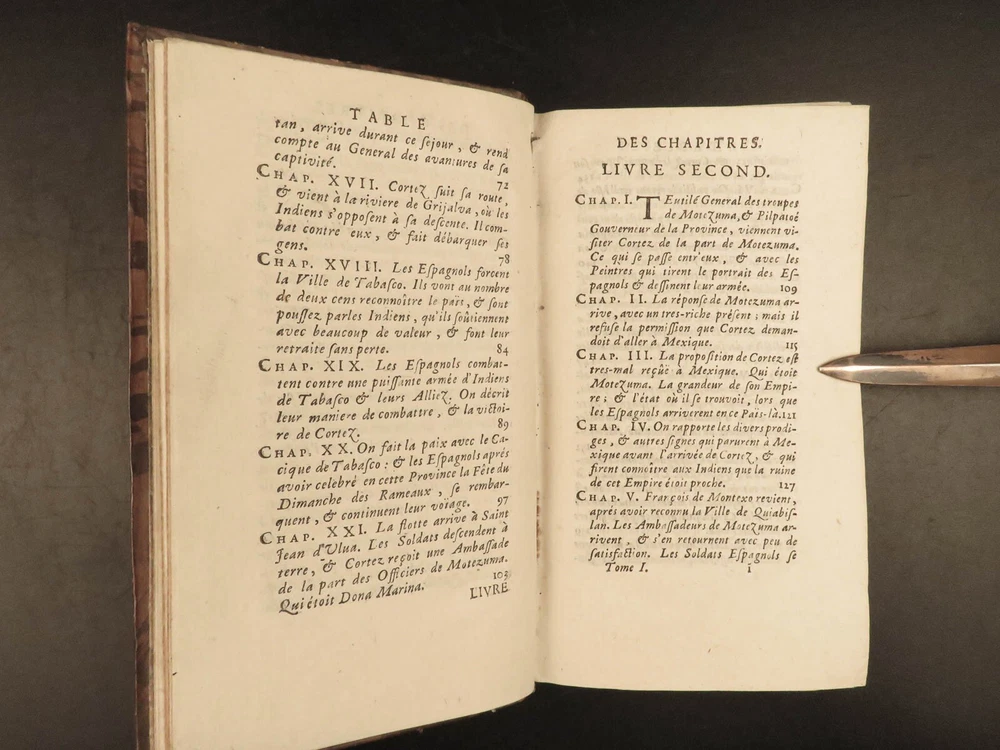 TABLE
tan, arrive durant ce ſejour, & rend
compte au General des avantures de ſa
captivité. 72
CHAP. XVII. Cortez ſuit ſa route,
& vient à la riviere de Grijalva, où les
Indiens s'oppoſent à ſa deſcente. Il com-
bat contre eux, & fait débarquer ſes
gens. 78
CHAP. XVIII. Les Eſpagnols forcent
la Ville de Tabaſco. Ils vont au nombre
de deux cens reconnoître le païs, & ſont
pouſſez parles Indiens, qu'ils ſoûtiennent
avec beaucoup de valeur, & font leur
retraite ſans perte. 84
CHAP. XIX. Les Eſpagnols combat-
tent contre une puiſſante armée d'Indiens
de Tabaſco & leurs Alliez. On décrit
leur maniere de combattre, & la victoi-
re de Cortez. 89
CHAP. XX. On fait la paix avec le Ca-
cique de Tabaſco: & les Eſpagnols aprés
avoir celebré en cette Province la Fête du
Dimanche des Rameaux, ſe rembar-
quent, & continuent leur voïage. 97
CHAP. XXI. La flotte arrive à Saint
Jean d'Ulua. Les Soldats deſcendent à
terre, & Cortez reçoit une Ambaſſade
de la part des Officiers de Motezuma.
Qui étoit Dona Marina. 103
LIVRE
DES CHAPITRES.
LIVRE SECOND.
CHAP. I. TEutilé General des troupes
de Motezuma, & Pilpatoé
Gouverneur de la Province, viennent vi-
ſiter Cortez de la part de Motezuma.
Ce qui ſe paſſe entr'eux, & avec les
Peintres qui tirent le portrait des Eſ-
pagnols & deſſinent leur armée. 109
CHAP. II. La réponſe de Motezuma ar-
rive, avec un tres-riche préſent; mais il
refuſe la permiſſion que Cortez deman-
doit d'aller à Mexique. 115
CHAP. III. La propoſition de Cortez eſt
tres-mal reçûë à Mexique. Qui étoit
Motezuma. La grandeur de ſon Empi-
re; & l'état où il ſe trouvoit, lors que
les Eſpagnols arriverent en ce Païs-là. 121
CHAP. IV. On rapporte les divers prodi-
ges, & autres ſignes qui parurent à Me-
xique avant l'arrivée de Cortez, & qui
firent connoître aux Indiens que la ruine
de cet Empire étoit proche. 127
CHAP. V. François de Montexo revient,
aprés avoir reconnu la Ville de Quiabiſ-
lan. Les Ambaſſadeurs de Motezuma ar-
rivent, & s'en retournent avec peu de
ſatisfaction. Les Soldats Eſpagnols ſe
Tome I. i